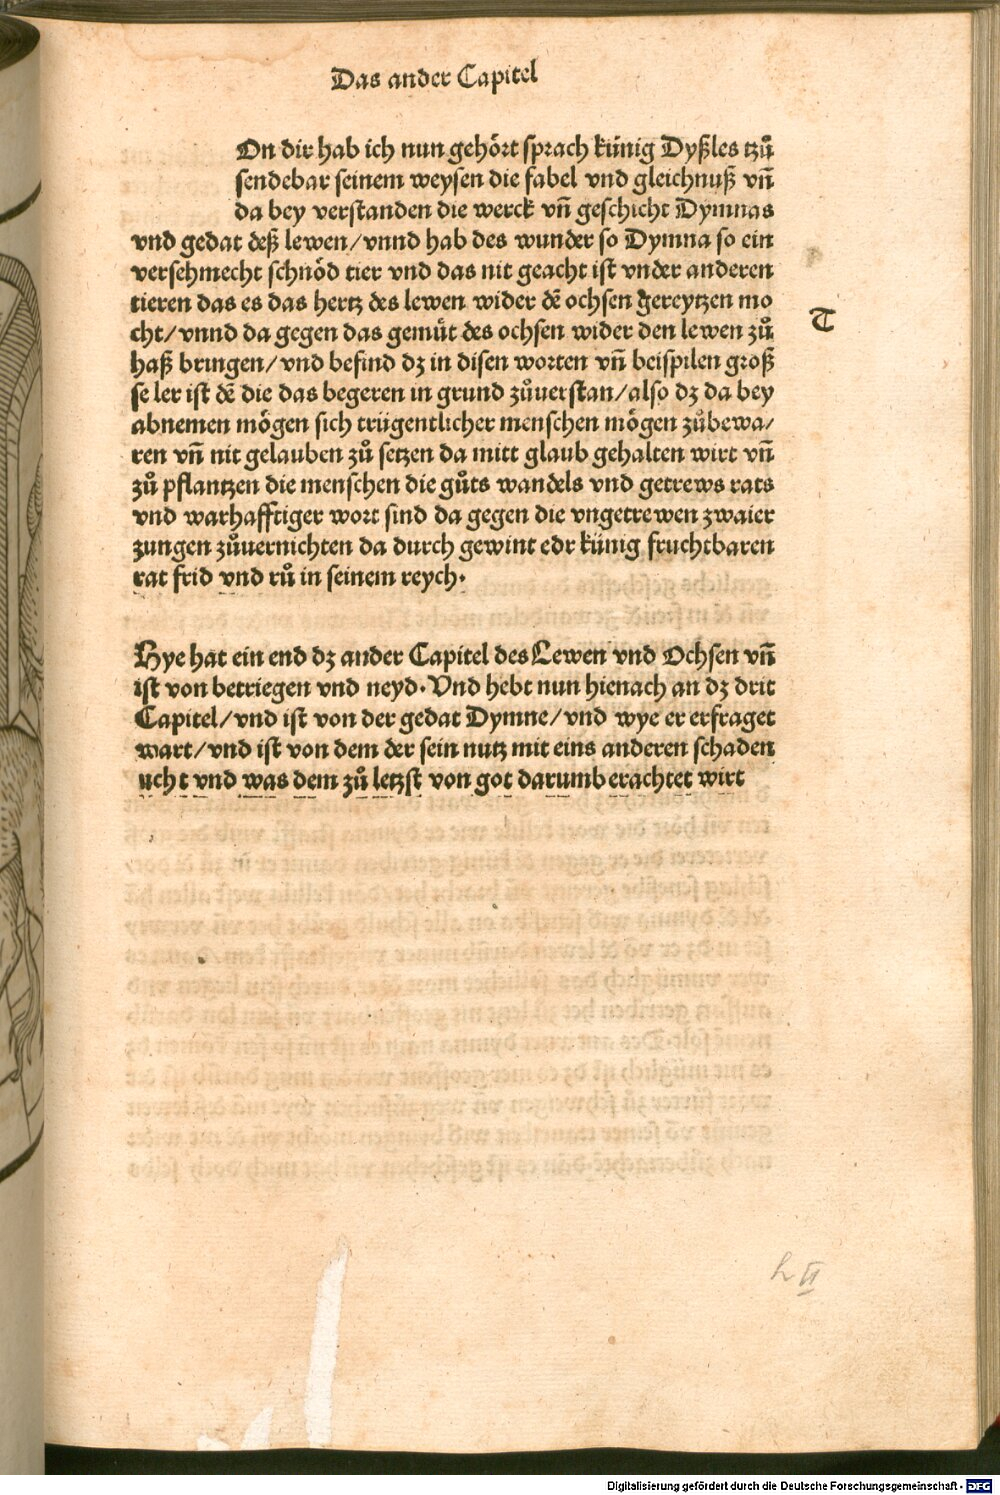 Das ander Capitel
On dir hab ich nun gehört sprach künig Dyßles tzů
sendebar seinem weysen die fabel vnd gleichnuß vñ
da bey verstanden die werck vñ geschicht Dymnas
vnd gedat deß lewen/vnnd hab des wunder so Dymna so ein
versehmecht schnöd tier vnd das nit geacht ist vnder anderen
tieren das es das hertz des lewen wider dē ochsen gereytzen mo
cht/vnnd da gegen das gemüt des ochsen wider den lewen zů
haß bringen/vnd befind dz in disen worten vñ beispilen groß
se ler ist dē die das begeren in grund zůuerstan/also dz da bey
abnemen mögen sich trügentlicher menschen mögen zůbewa/
ren vñ nit gelauben zů setzen da mitt glaub gehalten wirt vñ
zů pflantzen die menschen die gůts wandels vnd getrews rats
vnd warhafftiger wort sind da gegen die vngetrewen zwaier
zungen zůuernichten da durch gewint edr künig fruchtbaren
rat frid vnd rů in seinem reych.
T
Hye hat ein end dz ander Capitel des Lewen vnd Ochsen vñ
ist von betriegen vnd neyd. Vnd hebt nun hienach an dz drit
Capitel/vnd ist von der gedat Dymne/vnd wye er erfraget
wart/vnd ist von dem der sein nutz mit eins anderen schaden
ucht vnd was dem zů letzst von got darumb erachtet wirt
h II
Digitalisierung gefördert durch die Deutsche Forschungsgemeinschaft - DFG